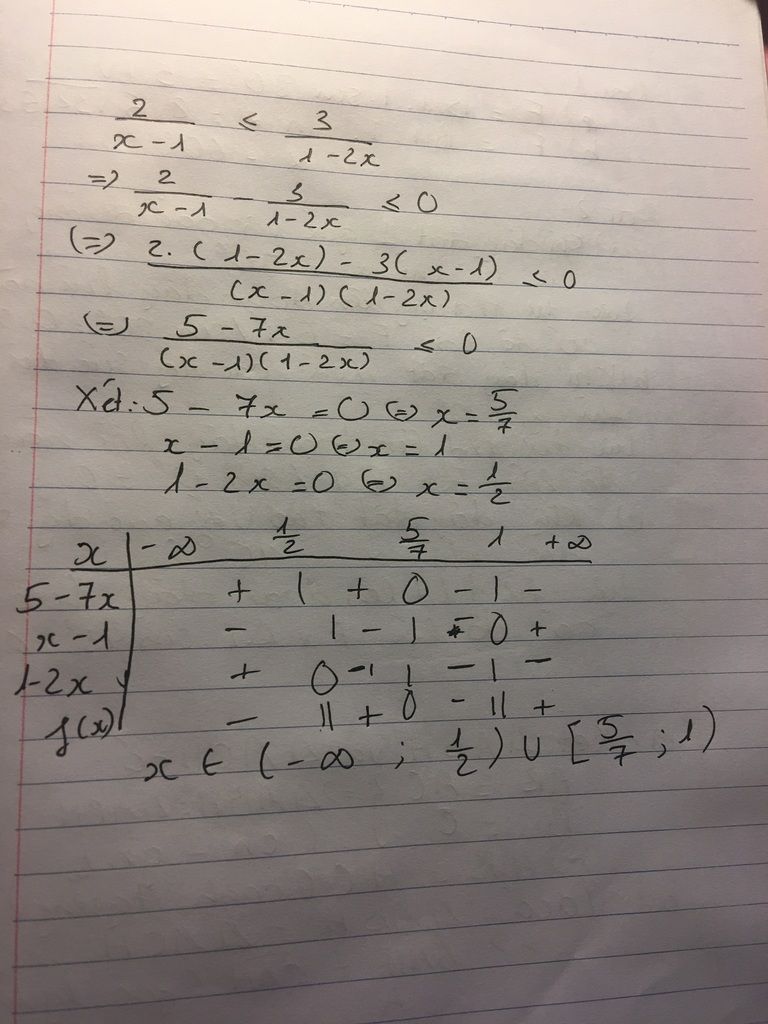 2/(x-1) ≤ 3/(1-2x)
=> 2/(x-1) - 3/(1-2x) ≤ 0
(=) (2.(1-2x) - 3(x-1))/((x-1)(1-2x)) ≤ 0
(=) (5-7x)/((x-1)(1-2x)) ≤ 0
Xét: 5 - 7x = 0 (=) x = 5/7
x - 1 = 0 (=) x = 1
1 - 2x = 0 (=) x = 1/2
x | -∞ 1/2 5/7 1 +∞
5-7x | + | + 0 - | -
x-1 | - | - | - 0 +
1-2x | + 0 - | - | -
f(x) | - || + 0 - || +
x ∈ (-∞ ; 1/2) ∪ [5/7 ; 1)